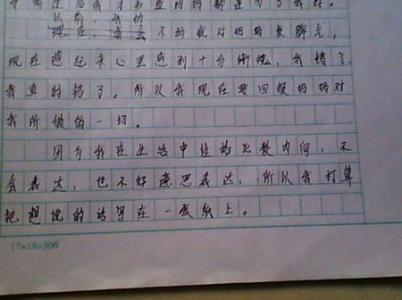 以前，我的
现在，我会不动就对妈妈发脾气，
现在想起来心里感到十分惭愧，我错了
我真的错了。所以我现在要回报妈妈对
我所做的一切。
因为我在生活中性格比较内向，不
会表达，也不好意思表达，所以我打算
把想说的话写在一张纸上。
17×18=306